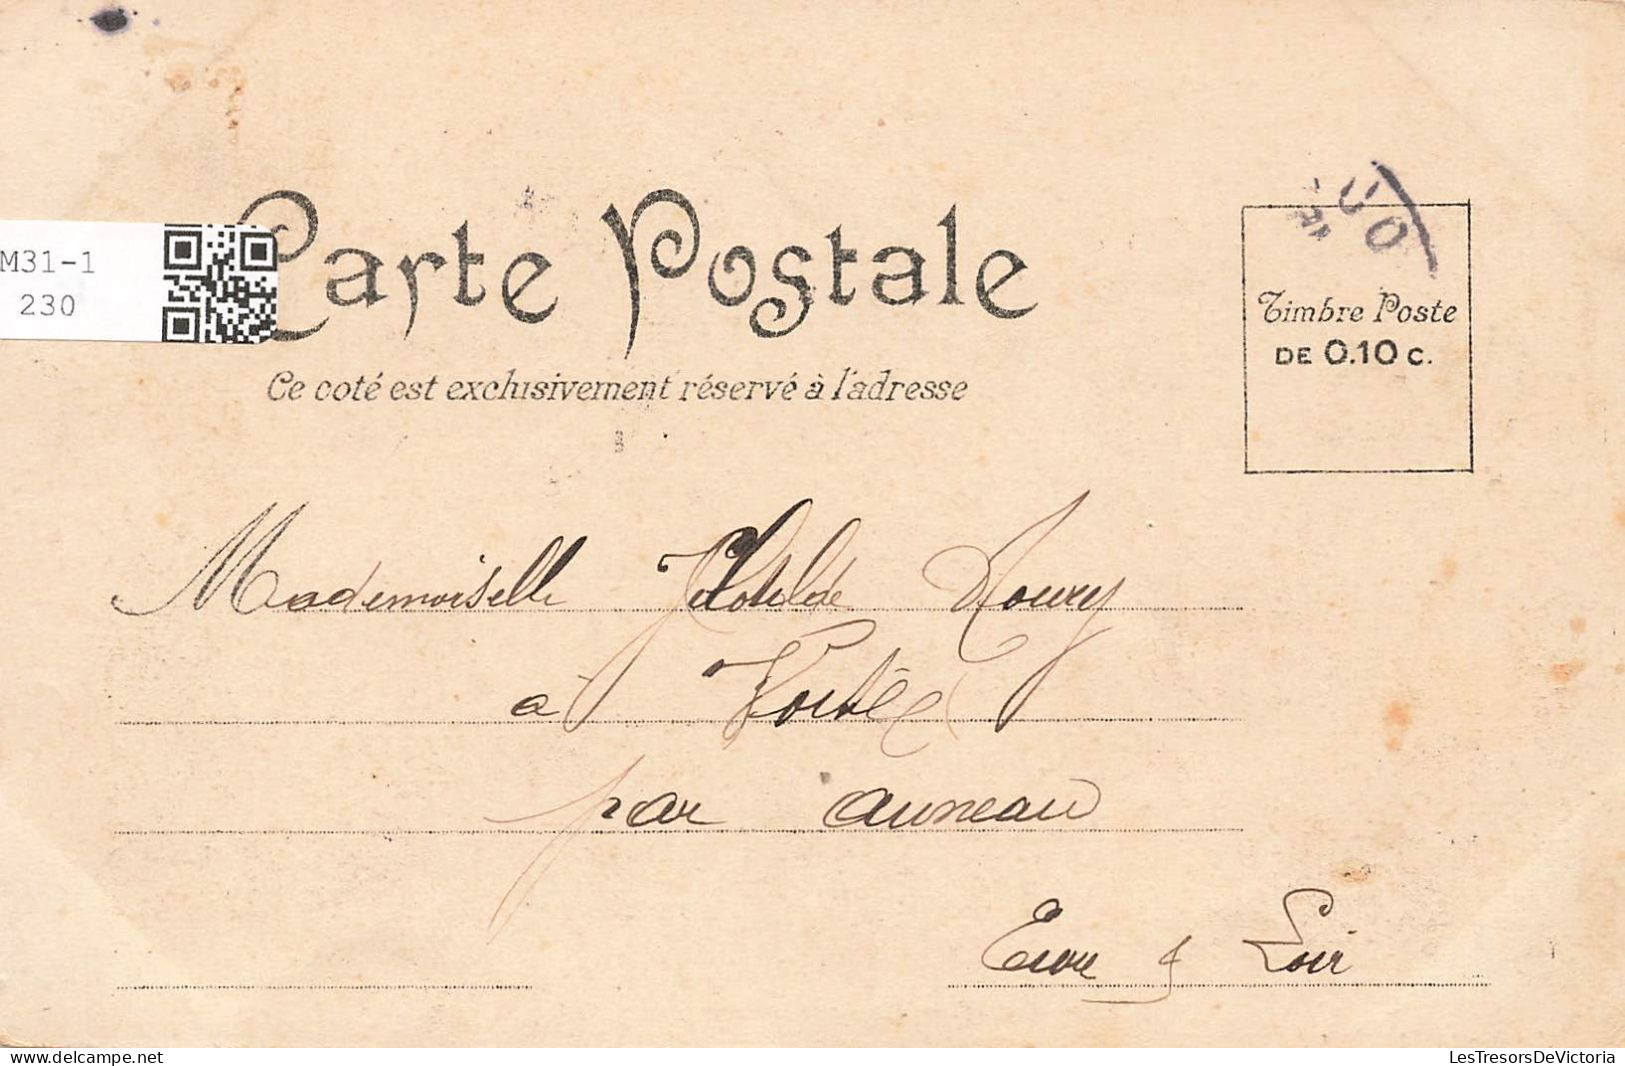 Carte Postale
M31-1
230
Ce coté est exclusivement réservé à l'adresse
Timbre Poste
DE 0.10 C.
Mademoiselle Clotilde
à
par auneau
Eure & Loir
delcampe.net
LesTresorsDeVictoria